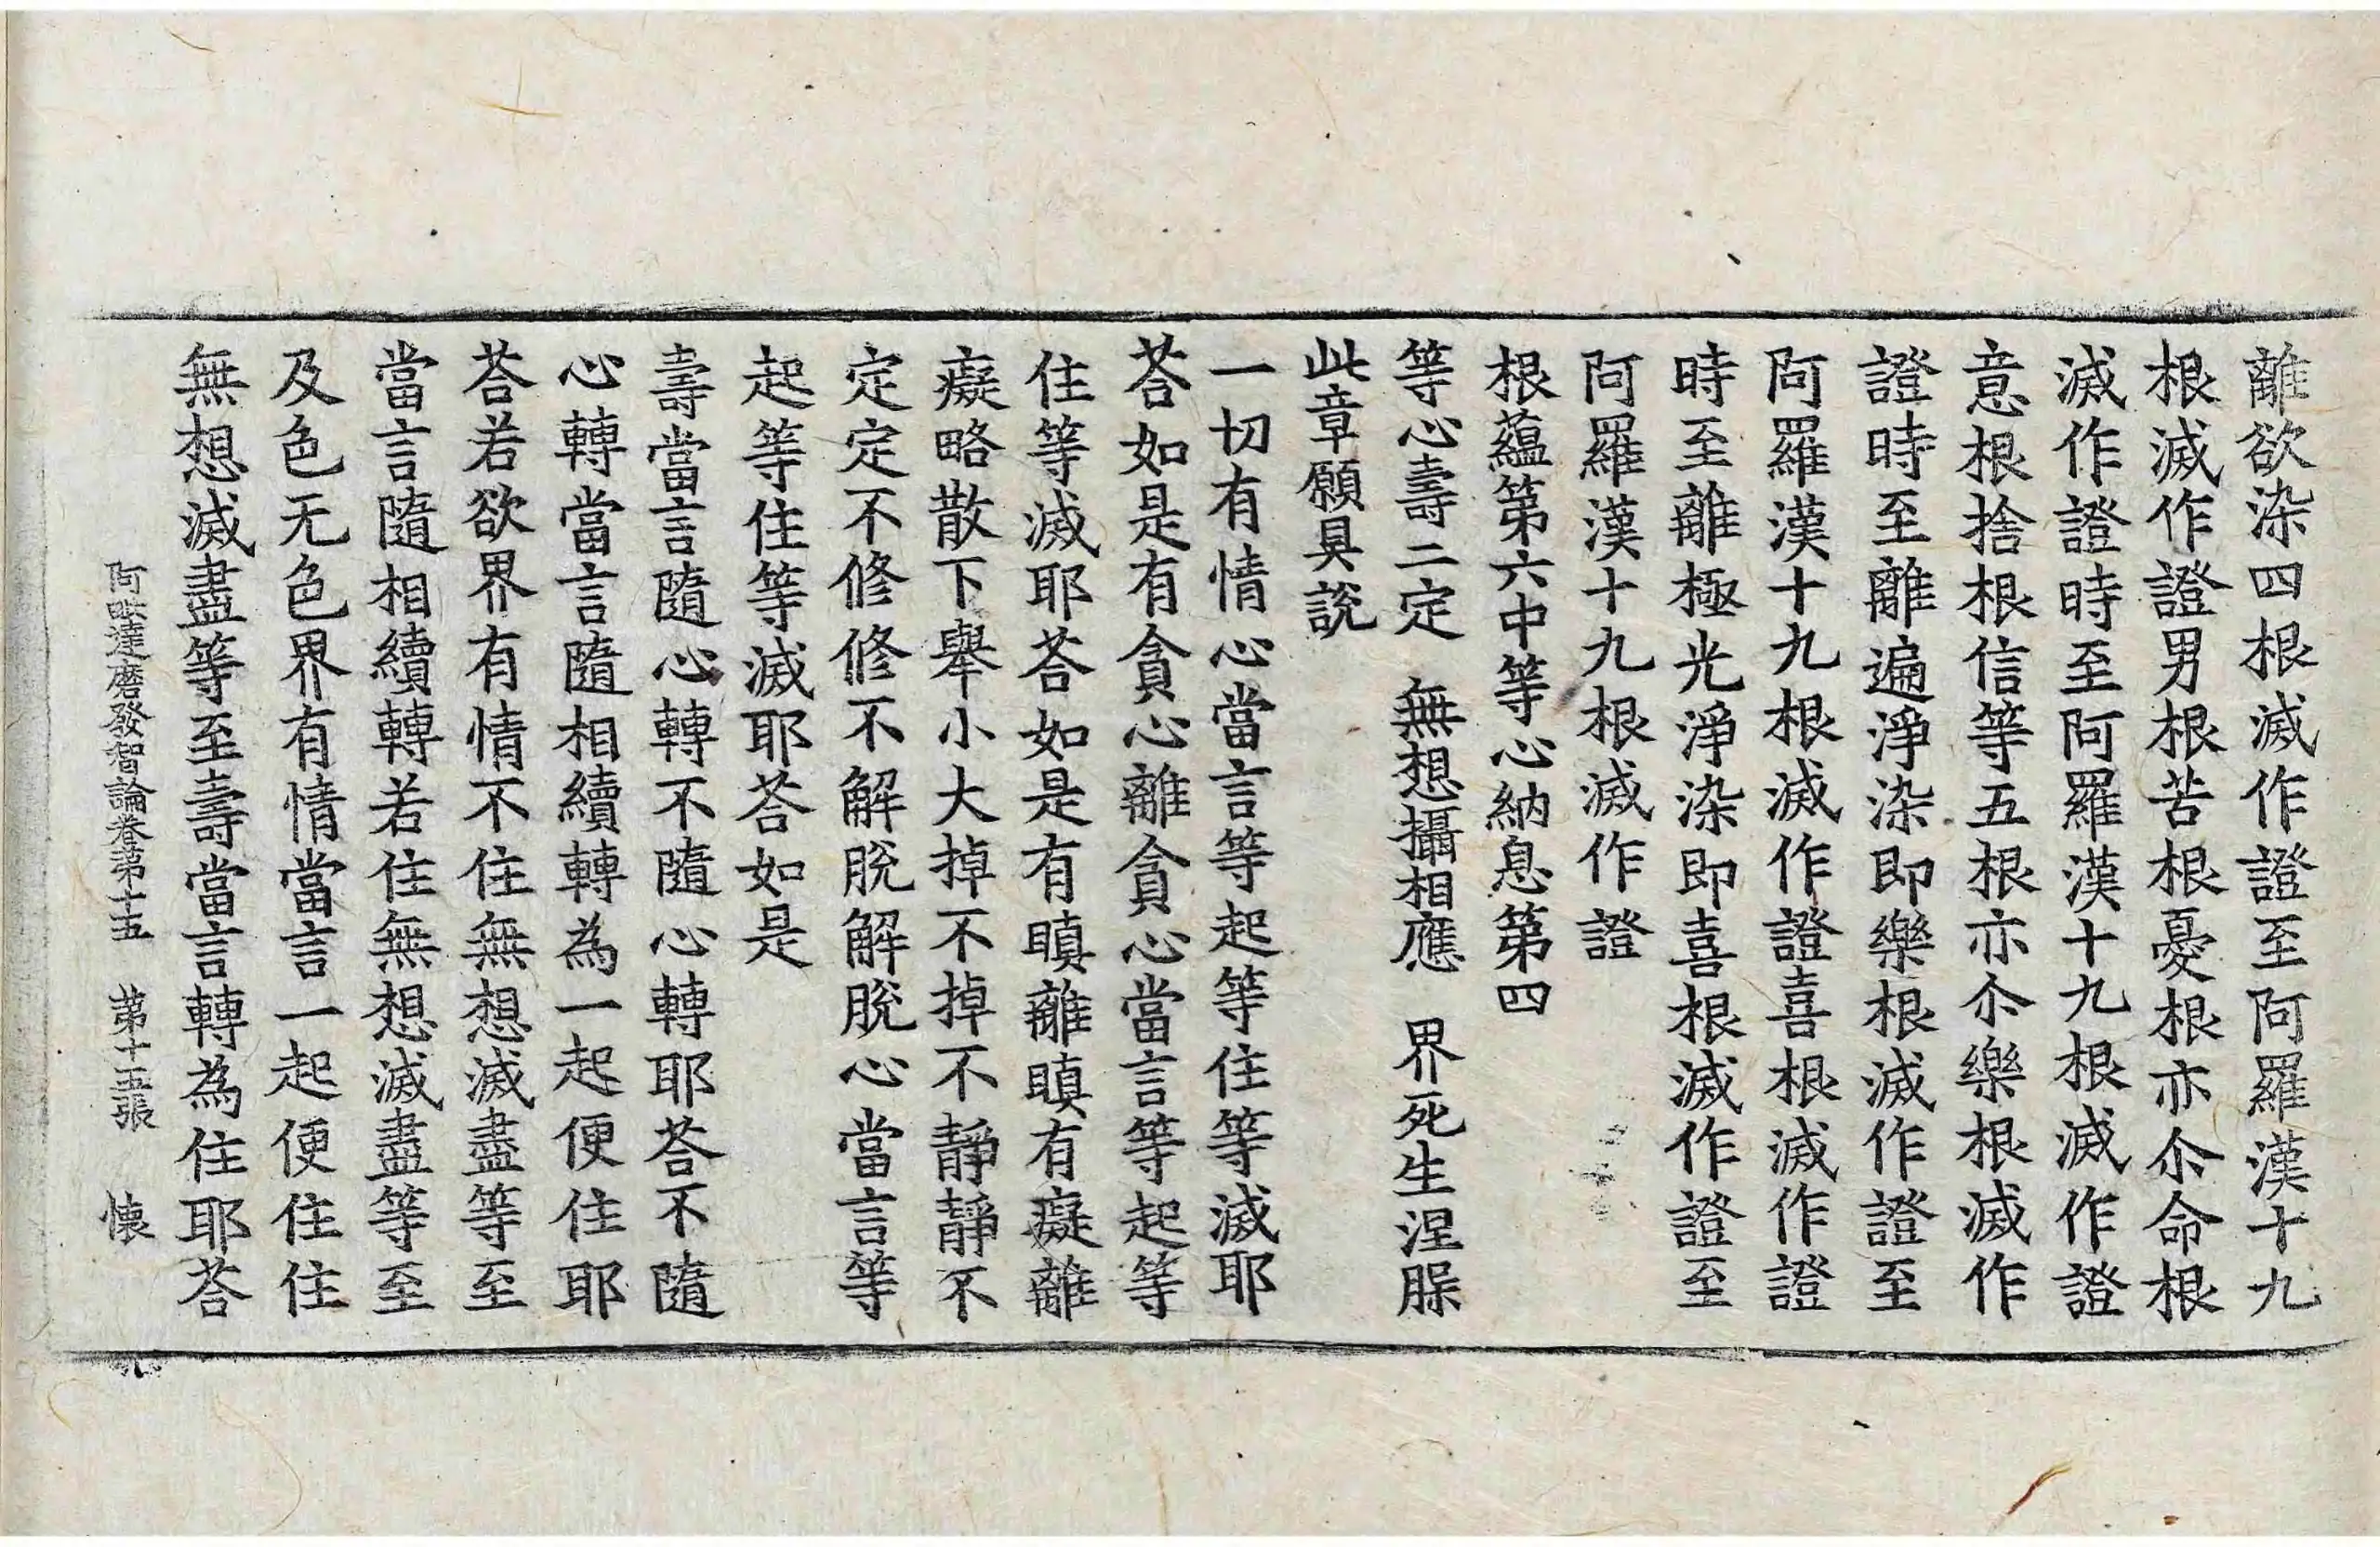 離欲染四根滅作證至阿羅漢十九
根滅作證男根苦根憂根亦尒命根
滅作證時至阿羅漢十九根滅作證
意根捨根信等五根亦尒樂根滅作
證時至離遍淨染即樂根滅作證至
阿羅漢十九根滅作證喜根滅作證
時至離極光淨染即喜根滅作證至
阿羅漢十九根滅作證
根蘊第六中等心納息第四
等心壽二定　無想攝相應　界死生涅槃
此章願具說
一切有情心當言等起等住等滅耶
荅如是有貪心離貪心當言等起等
住等滅耶荅如是有瞋離瞋有癡離
癡略散下舉小大掉不掉不靜靜不
定定不修修不解脫解脫心當言等
起等住等滅耶荅如是
壽當言隨心轉不隨心轉耶荅不隨
心轉當言隨相續轉為一起便住耶
荅若欲界有情不住無想滅盡等至
當言隨相續轉若住無想滅盡等至
及色无色界有情當言一起便住住
無想滅盡等至壽當言轉為住耶荅
阿毗達磨發智論卷第十五　第十五張　懷